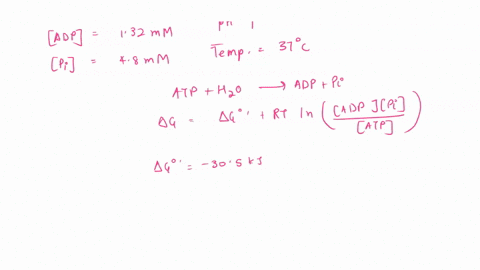 [ADP] = 1.32 mM
[Pi] = 4.8 mM
Temp. = 37°C
ATP + H2O → ADP + Pi
ΔG = ΔG°' + RT ln ([ADP][Pi] / [ATP])
ΔG°' = -30.5 kJ